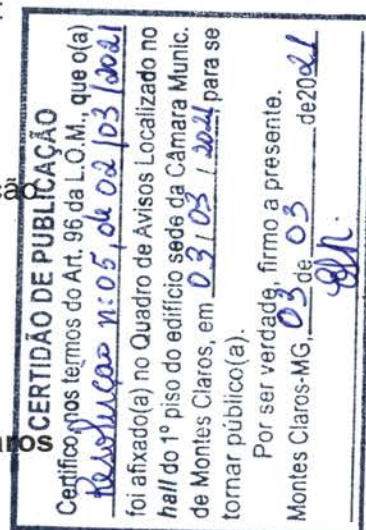 CERTIDÃO DE PUBLICAÇÃO
Certifico, nos termos do Art. 96 da L.O.M., que o(a)
Resolução nº 05, de 02/03/2021
foi afixado(a) no Quadro de Avisos Localizado no
hall do 1º piso do edifício sede da Câmara Munic.
de Montes Claros, em 03/03/2021 para se
tornar público(a).
Por ser verdade, firmo a presente.
Montes Claros-MG, 03 de 03 de 2021
ção
ros